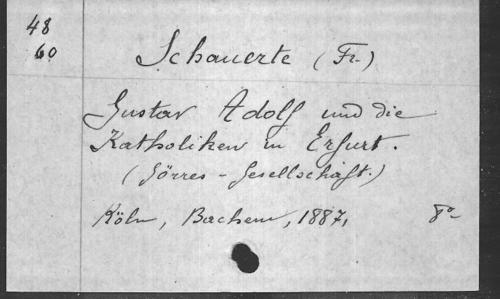 48
60
Schauerte (Fr.)
Gustav Adolf und die
Katholiken in Erfurt.
(Görres-Gesellschaft.)
Köln, Bachem, 1887, 8°